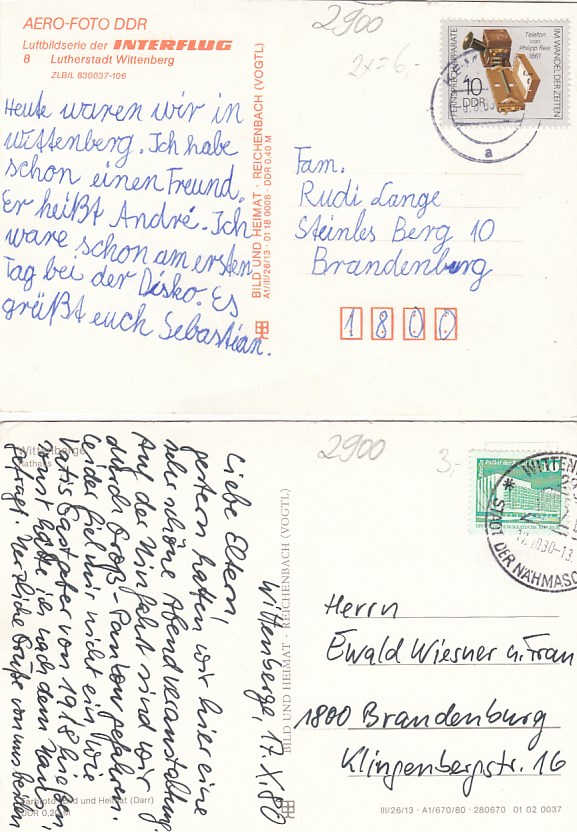 AERO-FOTO DDR
Luftbildserie der INTERFLUG
8 Lutherstadt Wittenberg
ZLB/L 830037-106
Heute waren wir in
Wittenberg. Ich habe
schon einen Freund.
Er heißt André. Ich
ware schon am ersten
Tag bei der Disko. Es
grüßt euch Sebastian.
BILD UND HEIMAT · REICHENBACH (VOGTL)
A1/III/26/13 · 01 18 0008 · DDR 0,40 M
2900
2x = 6,-
FERNSPRECHAPPARATE
IM WANDEL DER ZEITEN
Telefon
von
Philipp Reis
1861
10
DDR
a
Fam.
Rudi Lange
Steinles Berg 10
Brandenburg
1800
Wittenberge
Rathaus
Wittenberge, 17.X.80
Liebe Eltern!
gestern hatten wir hier eine
sehr schöne Abendveranstaltung.
Auf der Hinfahrt sind wir
durch Groß-Pankow gefahren.
Leider fiel mir nicht ein wie
Vatis Gastgeber von 1918 hießen
sonst hätte ich nach dem
gefragt. Herzliche Grüße von uns beiden
Farbfoto: Bild und Heimat (Darr)
DDR 0,20 M
BILD UND HEIMAT · REICHENBACH (VOGTL)
2900
3,-
10
WITTEN
STADT DER NÄHMASC
Herrn
Ewald Wiesner u. Frau
1800 Brandenburg
Klingenbergstr. 16
III/26/13 · A1/670/80 · 280670 01 02 0037